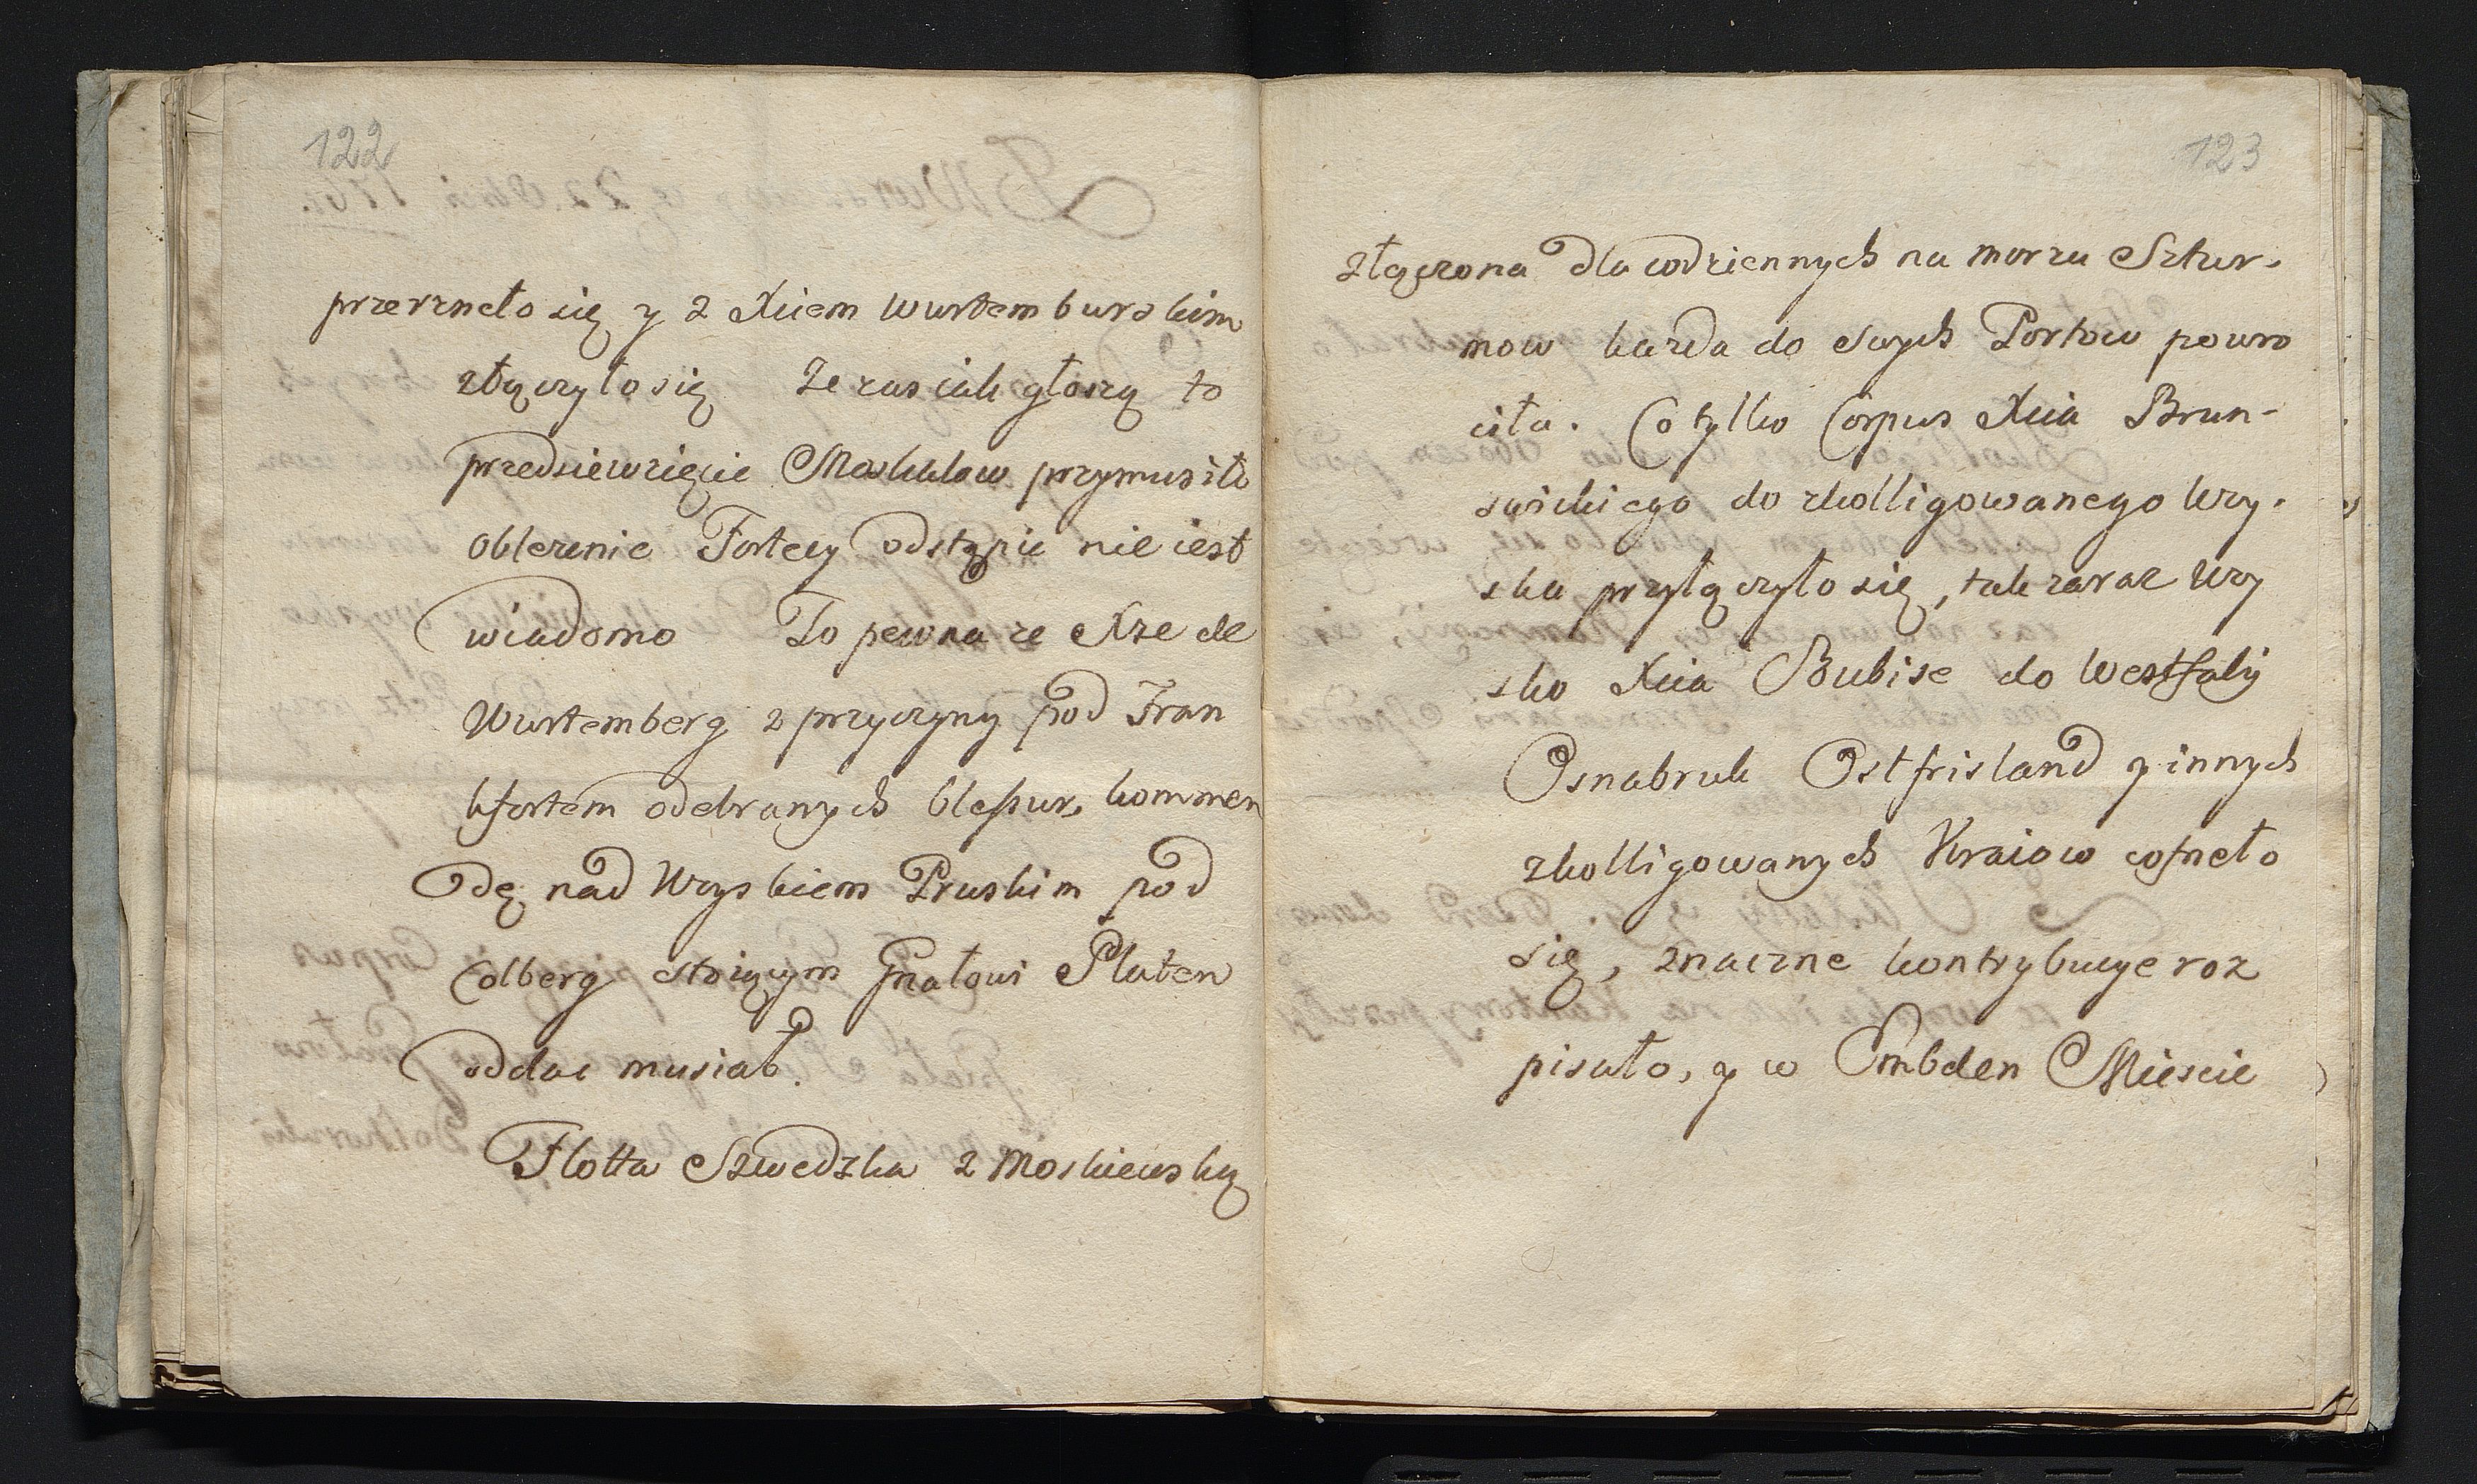 122
przerzneło się y z Xciem Wurtemburskim
złączyło się Ze zas iak głoszą to
przedsiewzięcie Moskalow przymusiło
Oblezenie Fortecy odstąpic nie iest
wiadomo To pewna ze Xże de
Wurtemberg z przyczyny pod Fran
kfortem odebranych blessur, kommen
dę nad Wzyskiem Pruskim pod
Colberg stoiącym Gnałowi Platen
oddac musiał.
Flotta Szwedzka z Moskiewską
123
złączona dla codziennych na morzu Sztur-
mow kazda do swych Portow powro
ciła. Co tylko Corpus Xcia Brun-
swickiego do zkolligowanego Wzy-
ska przyłączyło się, tak zaraz Wzy
sko Xcia Subise do Westfaly
Osnabruk Ostfrisland y innych
zkolligowanych Kraiow cofneło
się, znaczne kontrybucye roz
pisało, y w Embden Miescie